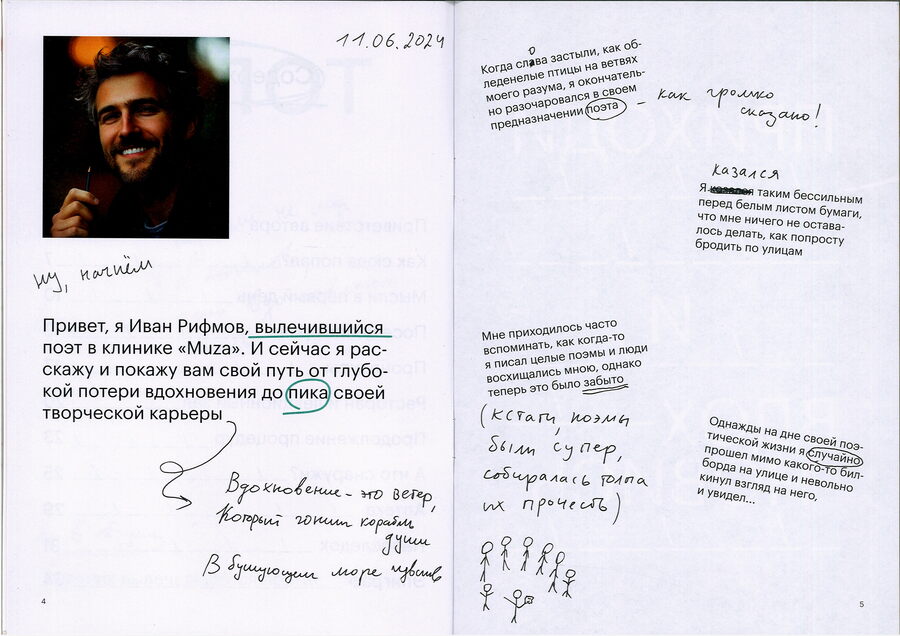 11.06.2024
ну, начнём
Привет, я Иван Рифмов, вылечившийся
поэт в клинике «Muza». И сейчас я рас-
скажу и покажу вам свой путь от глубо-
кой потери вдохновения до пика своей
творческой карьеры
Вдохновение - это ветер,
Который гонит корабль
души
В бушующем море чувств
4
Когда слова застыли, как об-
леденелые птицы на ветвях
моего разума, я окончатель-
но разочаровался в своем
предназначении поэта
- как громко
сказано!
казался
Я таким бессильным
перед белым листом бумаги,
что мне ничего не остава-
лось делать, как попросту
бродить по улицам
Мне приходилось часто
вспоминать, как когда-то
я писал целые поэмы и люди
восхищались мною, однако
теперь это было забыто
(кстати, поэмы
были супер,
собиралась толпа
их прочесть)
Однажды на дне своей поэ-
тической жизни я случайно
прошел мимо какого-то бил-
борда на улице и невольно
кинул взгляд на него,
и увидел...
5